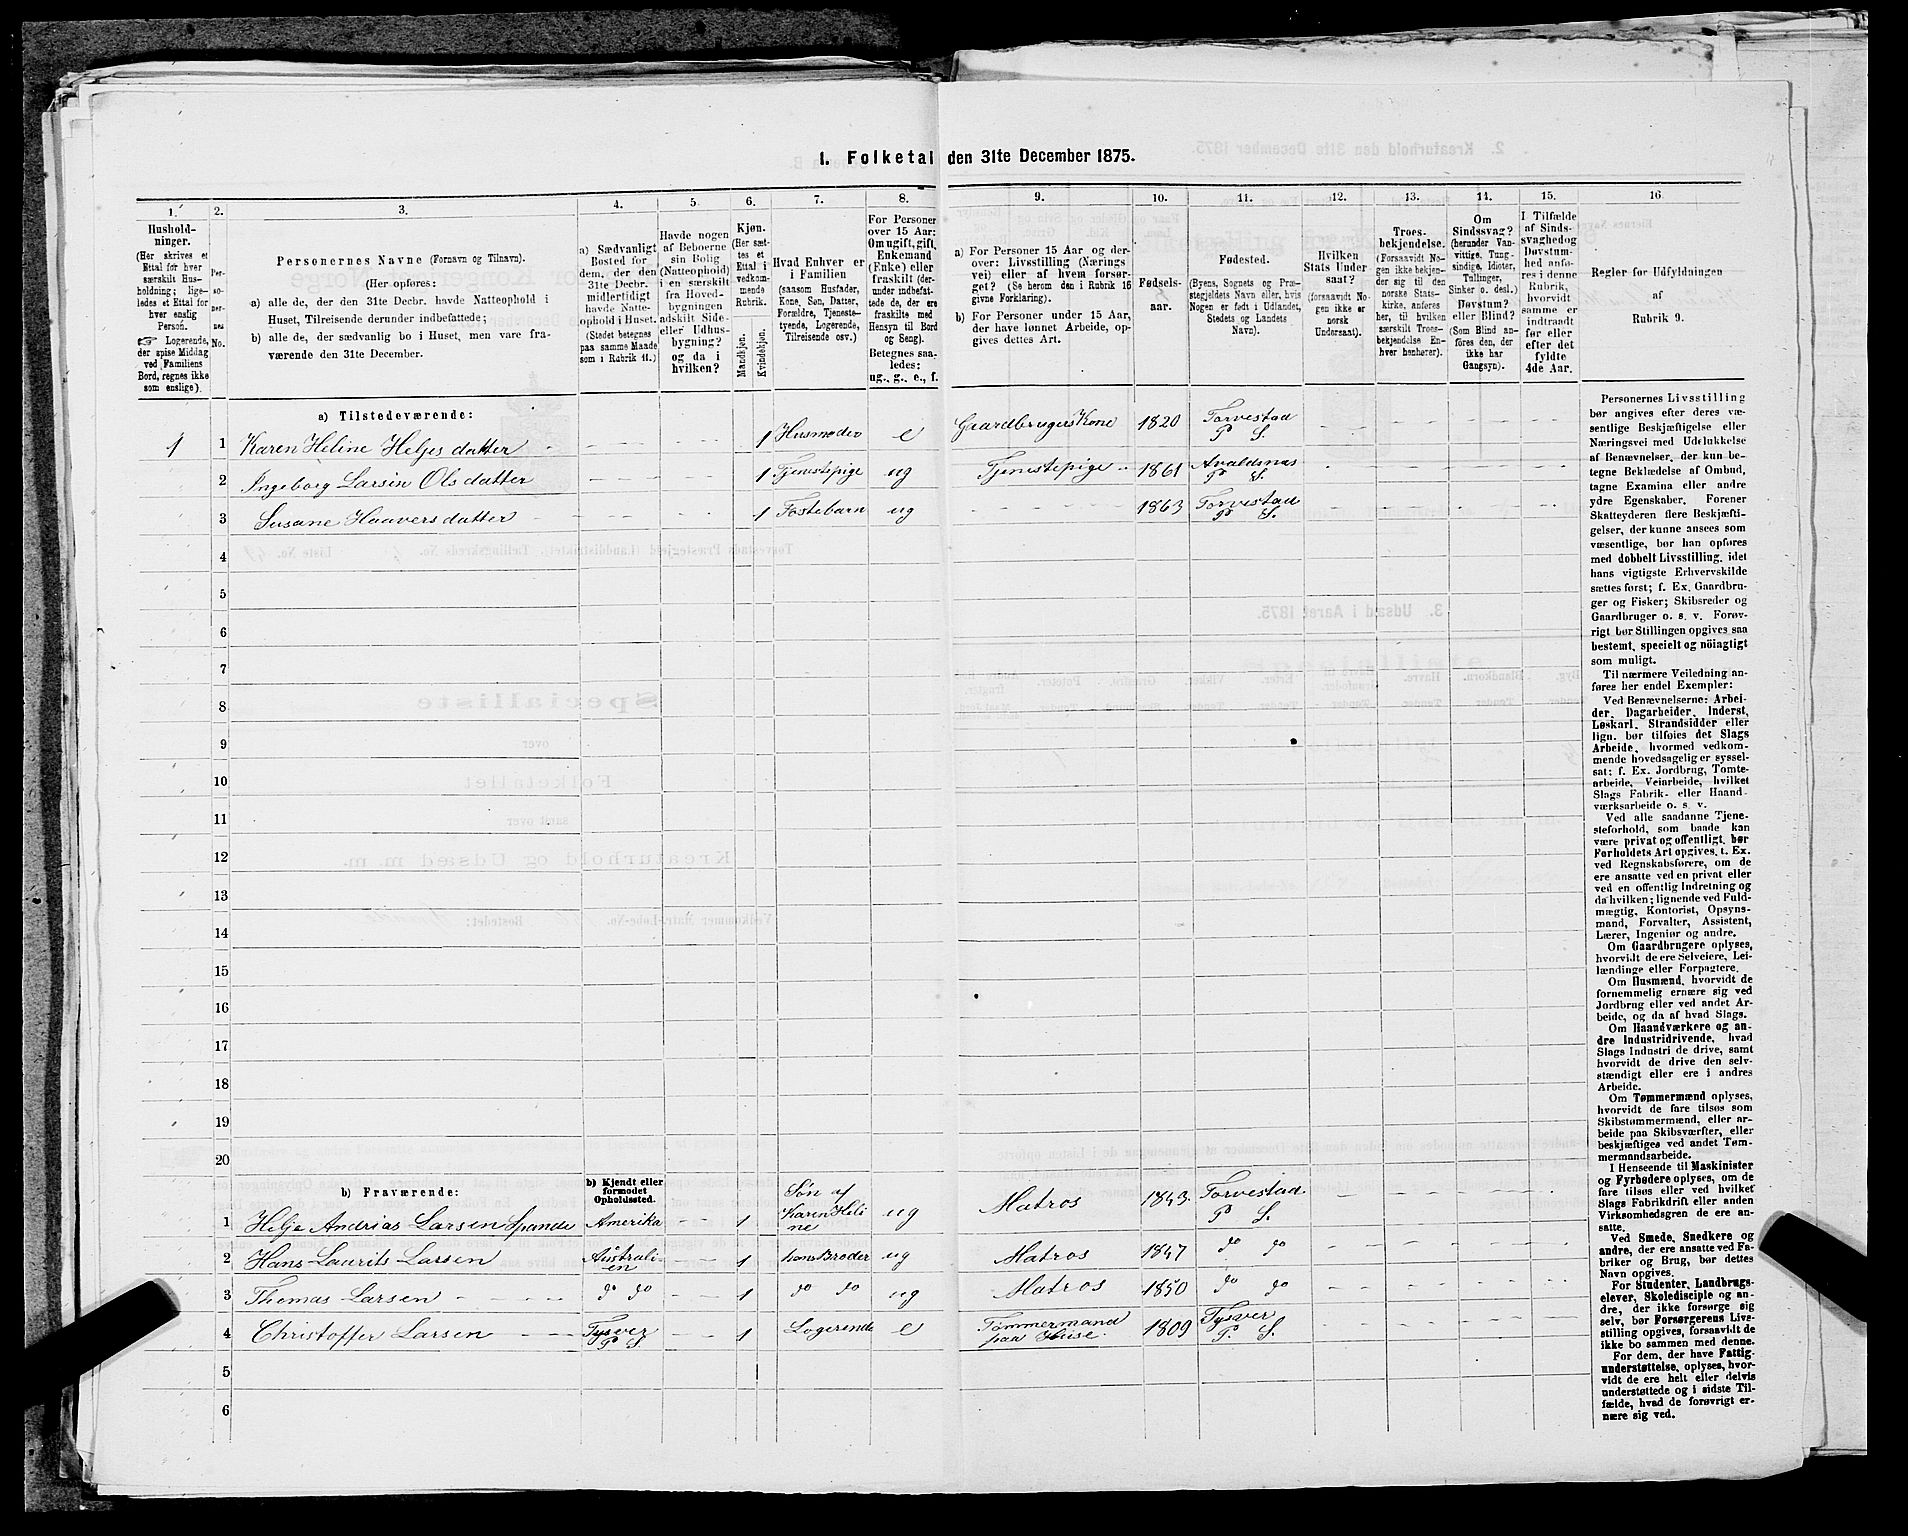 1. Folketal den 31te December 1875.
1. 2. 3. 4. 5. 6. 7. 8. 9. 10. 11. 12. 13. 14. 15. 16
Hushold-
ninger.
(Her skrives et
Ettal for hver
særskilt Hus-
holdning; lige-
ledes et Ettal for
hver enslig
Person.
☞ Logerende,
der spise Middag
ved Familiens
Bord, regnes ikke
som enslige).
Per-
so-
ner-
nes
No.
Personernes Navne (Fornavn og Tilnavn).
(Her opføres:
a) alle de, der den 31te Decbr. havde Natteophold i
Huset, Tilreisende derunder indbefattede;
b) alle de, der sædvanlig bo i Huset, men vare fra-
værende den 31te December.
a) Sædvanligt
Bosted for
dem, der den
31te Decbr.
midlertidigt
havde Natte-
ophold i Huset.
(Stedet betegnes
paa samme Maade
som i Rubrik 11.)
Havde nogen
af Beboerne
sin Bolig
(Natteophold)
i en særskilt
fra Hoved-
bygningen
adskilt Side-
eller Udhus-
bygning?
og da i
hvilken?
Kjøn.
(Her sæt-
tes et
Ettal i
vedkom-
mende
Rubrik.
Mandkjøn.
Kvindekjøn.
Hvad Enhver er
i Familien
(saasom Husfader,
Kone, Søn, Datter,
Forældre, Tjeneste-
tyende, Logerende,
Tilreisende osv.)
For Personer
over 15 Aar:
Om ugift, gift,
Enkemand
(Enke) eller
fraskilt (der-
under indbefat-
tede de, der ere
fraskilte med
Hensyn til Bord
og Seng).
Betegnes saa-
ledes:
ug., g., e., f.
a) For Personer 15 Aar og der-
over: Livsstilling (Nærings
vei) eller af hvem forsør-
get? (Se herom den i Rubrik 16
givne Forklaring).
b) For Personer under 15 Aar,
der have lønnet Arbeide, op-
gives dettes Art.
Fødsels-
aar.
Fødested.
(Byens, Sognets og Præ-
stegjeldets Navn eller, hvis
Nogen er født i Udlandet,
Stedets og Landets
Navn).
Hvilken
Stats Under
saat?
(forsaavidt No-
gen ikke er
norsk
Undersaat).
Troes-
bekjendelse.
(Forsaavidt No-
gen ikke bekjen-
der sig til den
norske Stats-
kirke, anføres
her, til hvilken
særskilt Troes-
bekjendelse En-
hver henhører).
Om
Sindssvag?
(herunder Van-
vittige, Tung-
sindige, Idioter,
Tullinger,
Sinker o. desl.)
Døvstum?
eller Blind?
(Som Blind an-
føres den, der
ikke har
Gangsyn).
I Tilfælde
af Sinds-
svaghed og
Døvstum-
hed anfø-
res i denne
Rubrik,
hvorvidt
samme er
indtraadt
før eller
efter det
fyldte
4de Aar.
Regler for Udfyldningen
af
Rubrik 9.
a) Tilstedeværende:
1 1 Karen Heline Heljesdatter 1 Husmoder e Gaardbrugers Kone 1820 Torvestad P S.
2 Ingeborg Larsin Olsdatter 1 Tjenestepige ug Tjenestepige 1861 Avaldsnas P S.
3 Susane Haaversdatter 1 Fostebarn ug 1863 Torvestad P S.
4
5
6
7
8
9
10
11
12
13
14
15
16
17
18
19
20
b) Fraværende: b) Kjendt eller
formodet
Opholdssted.
1 Helje Andrias Larsen Spande Amerika 1 Søn af Karen Heline ug Matros 1843. Torvestad P S.
2 Hans Laurits Larsen Australien 1 hans Broder ug Matros 1847 do do
3 Thomas Larsen do do 1 do do ug Matros 1850 do do
4 Christoffer Larsen Tysver P S 1 Logerende e Tømmermand paa Huse. 1809 Tysver P S.
5
6
Personernes Livsstilling
bør angives efter deres væ-
sentlige Beskjæftigelse eller
Næringsvei med Udelukkelse
af Benævnelser, der kun be-
tegne Beklædelse af Ombud,
tagne Examina eller andre
ydre Egenskaber. Forener
Skatteyderen flere Beskjæfti-
gelser, der kunne ansees som
væsentlige, bør han opføres
med dobbelt Livsstilling, idet
hans vigtigste Erhvervskilde
sættes først; f. Ex. Gaardbru-
ger og Fisker; Skibsreder og
Gaardbruger o. s. v. Forøv-
rigt bør Stillingen opgives saa
bestemt, specielt og nöiagtigt
som muligt.
Til nærmere Veiledning an-
føres her endel Exempler:
Ved Benævnelserne: Arbei-
der, Dagarbeider, Inderst,
Løskarl, Strandsidder eller
lign. bør tilføies det Slags
Arbeide, hvormed vedkom-
mende hovedsagelig er syssel-
sat; f. Ex. Jordbrug, Tomte-
arbeide, Veiarbeide, hvilket
Slags Fabrik- eller Haand-
værksarbeide o. s. v.
Ved alle saadanne Tjene-
steforhold, som baade kan
være privat og offentligt, bør
Forholdets Art opgives, t. Ex.
ved Regnskabsførere, om de
ere ansatte ved en privat eller
ved en offentlig Indretning og
da hvilken; lignende ved Fuld-
mægtig, Kontorist, Opsyns-
mand, Forvalter, Assistent,
Lærer, Ingeniør og andre.
Om Gaardbrugere oplyses,
hvorvidt de ere Selveiere, Lei-
lændinge eller Forpagtere.
Om Husmænd, hvorvidt de
fornemmelig ernære sig ved
Jordbrug eller ved andet Ar-
beide, og da af hvad Slags.
Om Haandværkere og an-
dre Industridrivende, hvad
Slags Industri de drive, samt
hvorvidt de drive den selv-
stændigt eller ere i andres
Arbeide.
Om Tømmermænd oplyses,
hvorvidt de fare tilsøs som
Skibstømmermænd, eller ar-
beide paa Skibsværfter, eller
beskjæftiges ved andet Tøm-
mermandsarbeide.
I Henseende til Maskinister
og Fyrbødere oplyses, om de
fare tilsøs eller ved hvilket
Slags Fabrikdrift eller anden
Virksomhedsgren de ere an-
satte.
Ved Smede, Snedkere og
andre, der ere ansatte ved Fa-
briker og Brug, bør dettes
Navn opgives.
For Studenter, Landbrugs-
elever, Skoledisciple og an-
dre, der ikke forsørge sig
selv, bør Forsørgerens Livs-
stilling opgives, forsaavidt de
ikke bo sammen med denne.
For dem, der have Fattig-
understøttelse, oplyses, hvor-
vidt de ere helt eller delvis
understøttede og i sidste Til-
fælde, hvad de forøvrigt er-
nære sig ved.